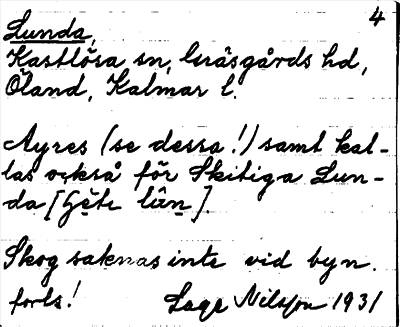 4
Lunda,
Kastlösa sn, Gräsgårds hd,
Öland, Kalmar l.
Ayres (se dessa!) samt kal-
las också för Skitiga Lun-
da [
Skog saknas inte vid byn.
forts! Lage Nilsson 1931